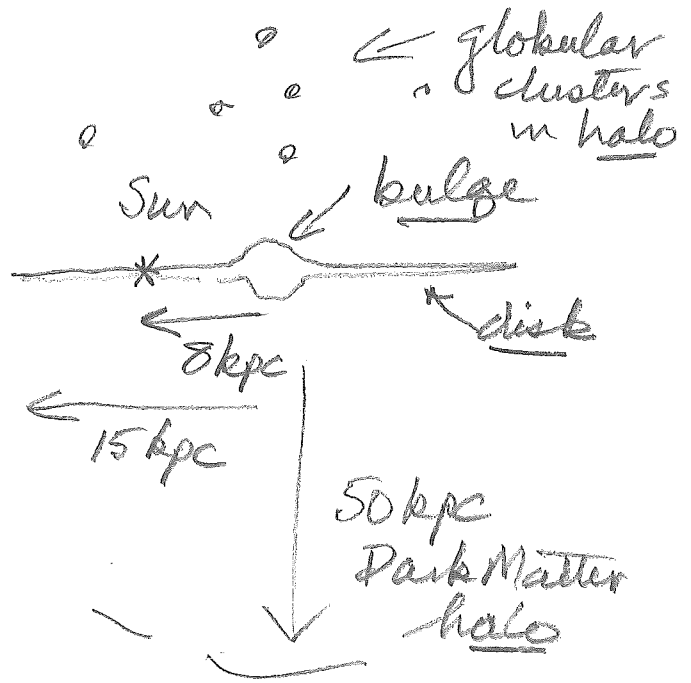 globular
clusters
in halo
Sun
bulge
disk
8kpc
15 kpc
50 kpc
Dark Matter
halo